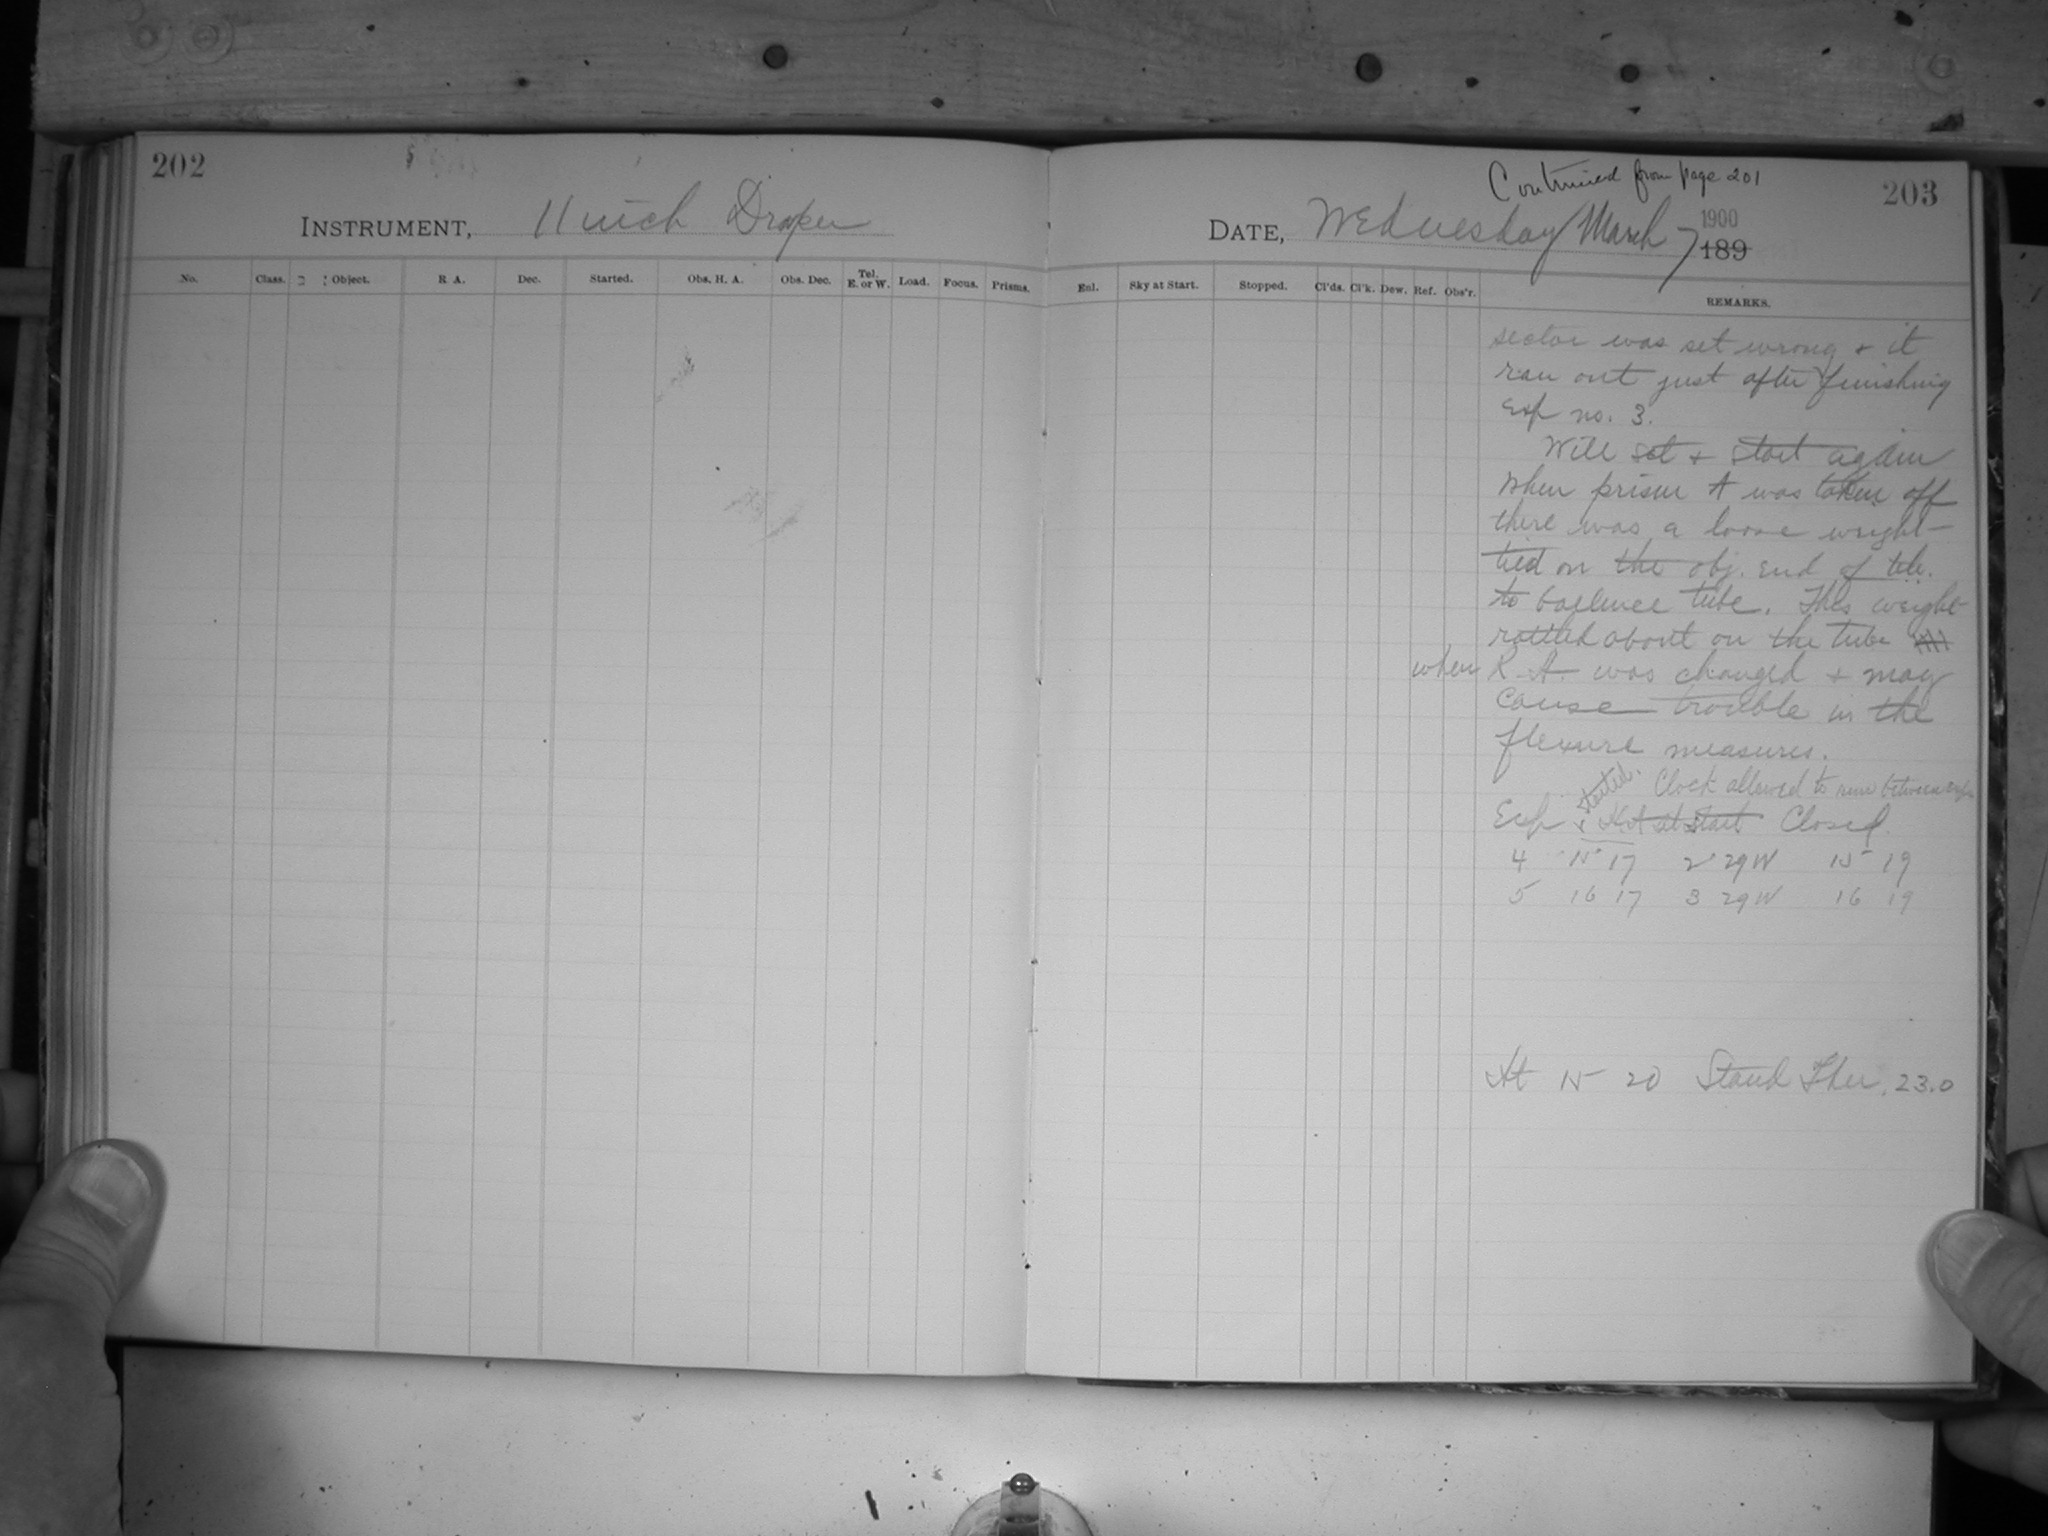 202
INSTRUMENT, 11 inch Draper
No. Class. Object. R A. Dec. Started. Obs. H. A. Obs. Dec. Tel. E. or W. Load. Focus. Prisms.
Continued from page 201
203
DATE, Wednesday March 7 1900 189
Enl. Sky at Start. Stopped. Cl'ds. Cl'k. Dew. Ref. Obs'r. REMARKS.
sector was set wrong & it
ran out just after finishing
Exp no. 3.
Will set & start again
When prism A was taken off
there was a loose weight
tied on the obj. end of tele.
to ballence tube. This weight
rattled about on the tube
when R. A. was changed & may
cause trouble in the
flexure measures.
started. Clock allowed to run between exps
Exp & HA at start Closed
4 15 17 2 29 W 15 19
5 16 17 3 29 W 16 19
At 15 20 Stand Ther. 23.0